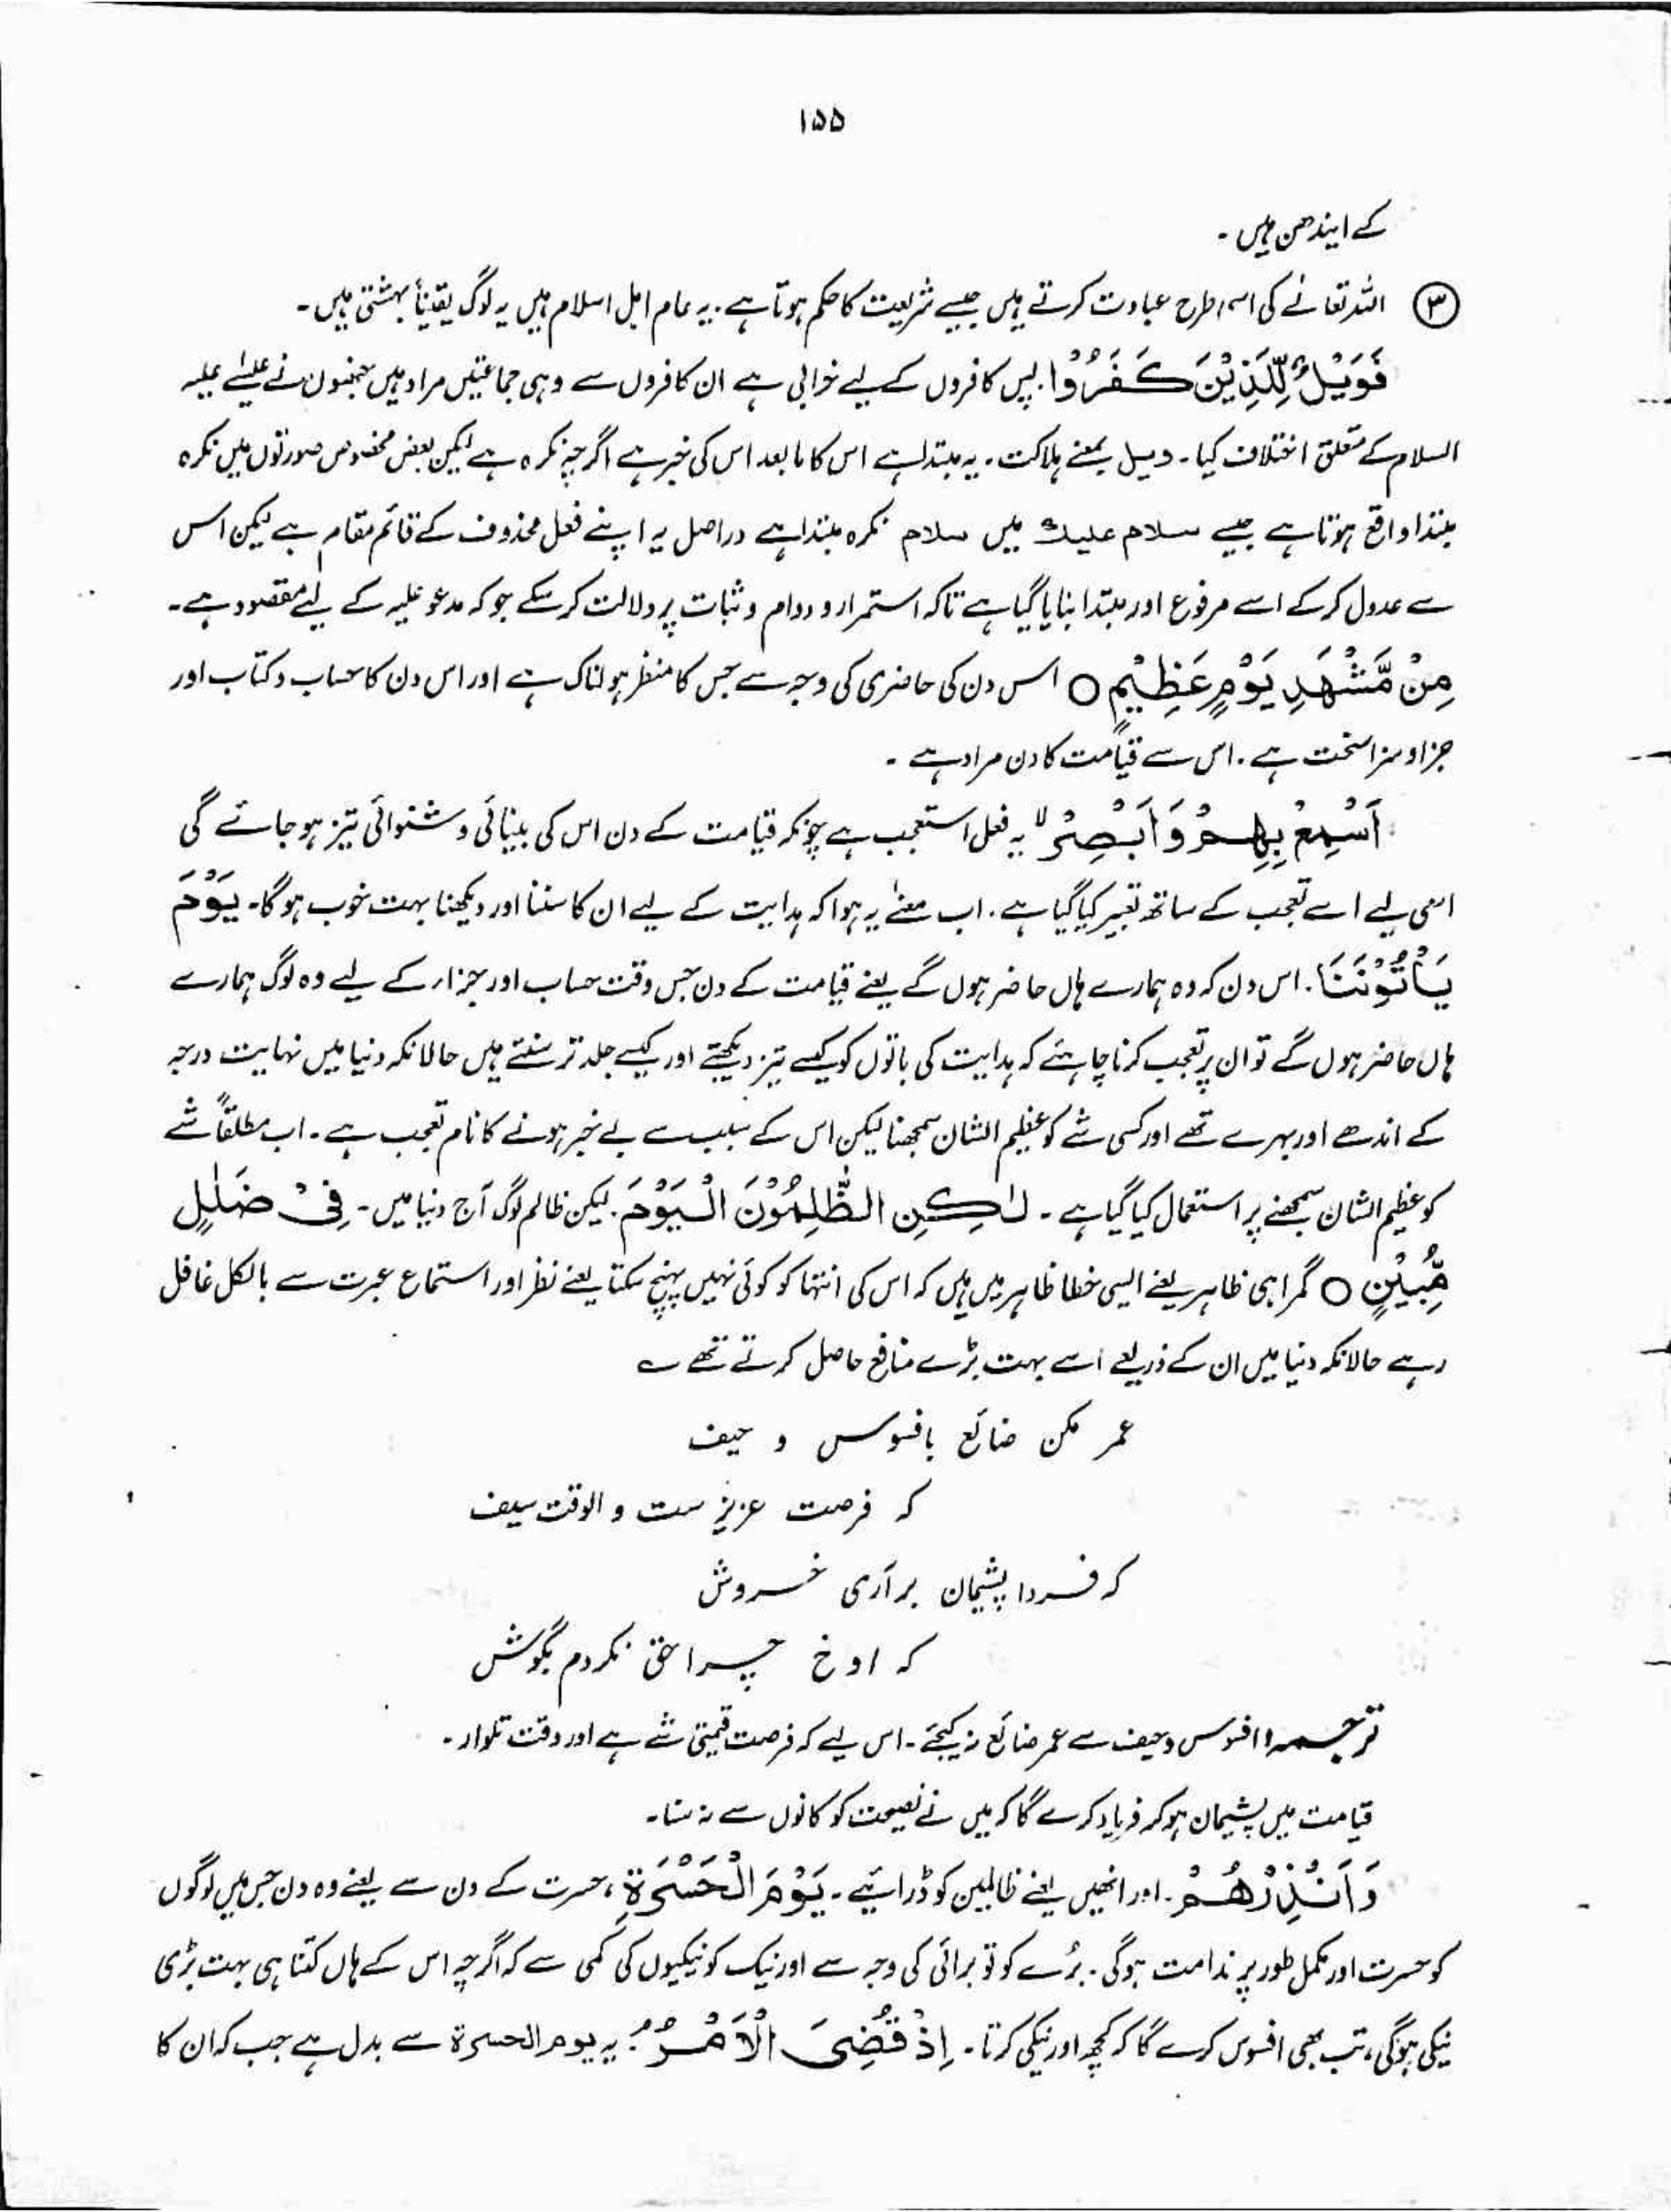 ۱۵۵
کے ایندھن ہیں ۔
③ اللہ تعالٰے کی اسی طرح عبادت کرتے ہیں جیسے شریعت کا حکم ہوتا ہے ۔ یہ تمام اہل اسلام ہیں یہ لوگ یقیناً بہشتی ہیں ۔
فَوَيْلٌ لِّلَّذِيْنَ كَفَرُوْا ۔ پس کافروں کے لیے خرابی ہے ان کافروں سے وہی جماعتیں مراد ہیں جنھوں نے عیسٰے علیہ
السلام کے متعلق اختلاف کیا ۔ ویل بمعنے ہلاکت ۔ یہ مبتدا ہے اس کا مابعد اس کی خبر ہے اگرچہ نکرہ ہے لیکن بعض مخصوص صورتوں میں نکرہ
مبتدا واقع ہوتا ہے جیسے سلام علیك میں سلام نکرہ مبتدا ہے دراصل یہ اپنے فعل محذوف کے قائم مقام ہے لیکن اس
سے عدول کرکے اسے مرفوع اور مبتدا بنایا گیا ہے تاکہ استمرار و دوام و ثبات پر دلالت کرسکے جو کہ مدعو علیہ کے لیے مقصود ہے ۔
مِنْ مَّشْهَدِ يَوْمٍ عَظِيْمٍ ○ اس دن کی حاضری کی وجہ سے جس کا منظر ہولناک ہے اور اس دن کا حساب و کتاب اور
جزا و سزا سخت ہے ۔ اس سے قیامت کا دن مراد ہے ۔
اَسْمِعْ بِهِمْ وَاَبْصِرْ ۙ یہ فعل استعجب ہے چونکہ قیامت کے دن اس کی بینائی و شنوائی تیز ہو جائے گی
اسی لیے اسے تعجب کے ساتھ تعبیر کیا گیا ہے ۔ اب معنٰے یہ ہوا کہ ہدایت کے لیے ان کا سننا اور دیکھنا بہت خوب ہوگا ۔ يَوْمَ
يَاْتُوْنَنَا ۔ اس دن کہ وہ ہمارے ہاں حاضر ہوں گے یعنے قیامت کے دن جس وقت حساب اور جزاء کے لیے وہ لوگ ہمارے
ہاں حاضر ہوں گے تو ان پر تعجب کرنا چاہئے کہ ہدایت کی باتوں کو کیسے تیز دیکھتے اور کیسے جلد تر سنتے ہیں حالانکہ دنیا میں نہایت درجہ
کے اندھے اور بہرے تھے اور کسی شے کو عظیم الشان سمجھنا لیکن اس کے سبب سے بے خبر ہونے کا نام تعجب ہے ۔ اب مطلقاً شے
کو عظیم الشان سمجھنے پر استعمال کیا گیا ہے ۔ لٰكِنِ الظّٰلِمُوْنَ الْيَوْمَ ۔ لیکن ظالم لوگ آج دنیا میں ۔ فِىْ ضَلٰلٍ
مُّبِيْنٍ ○ گمراہی ظاہر یعنے ایسی خطا ظاہر میں ہیں کہ اس کی انتہا کو کوئی نہیں پہنچ سکتا یعنے نظر اور استماع عبرت سے بالکل غافل
رہے حالانکہ دنیا میں ان کے ذریعے اسے بہت بڑے منافع حاصل کرتے تھے ؎
عمر مکن ضائع بافسوس و حیف
کہ فرصت عزیز ست و الوقت سیف
کہ فردا پشیمان برآری خروش
کہ اوخ چرا حق نکردم بگوش
ترجمہ؛ افسوس و حیف سے عمر ضائع نہ کیجئے ۔ اس لیے کہ فرصت قیمتی شے ہے اور وقت تلوار ۔
قیامت میں پشیمان ہوکر فریاد کرے گا کہ میں نے نصیحت کو کانوں سے نہ سنا ۔
وَاَنْذِرْهُمْ ۔ اور انھیں یعنے ظالمین کو ڈرائیے ۔ يَوْمَ الْحَسْرَةِ ، حسرت کے دن سے یعنے وہ دن جس میں لوگوں
کو حسرت اور مکمل طور پر ندامت ہوگی ۔ بُرے کو تو برائی کی وجہ سے اور نیک کو نیکیوں کی کمی سے کہ اگرچہ اس کے ہاں کتنا ہی بہت بڑی
نیکی ہوگی ، تب بھی افسوس کرے گا کہ کچھ اور نیکی کرتا ۔ اِذْ قُضِىَ الْاَمْرُ ۘ یہ یوم الحسرة سے بدل ہے جب کہ ان کا